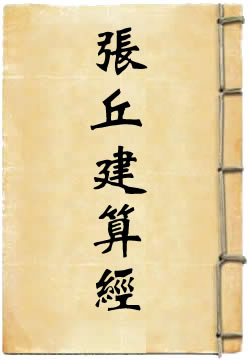 張丘建算經